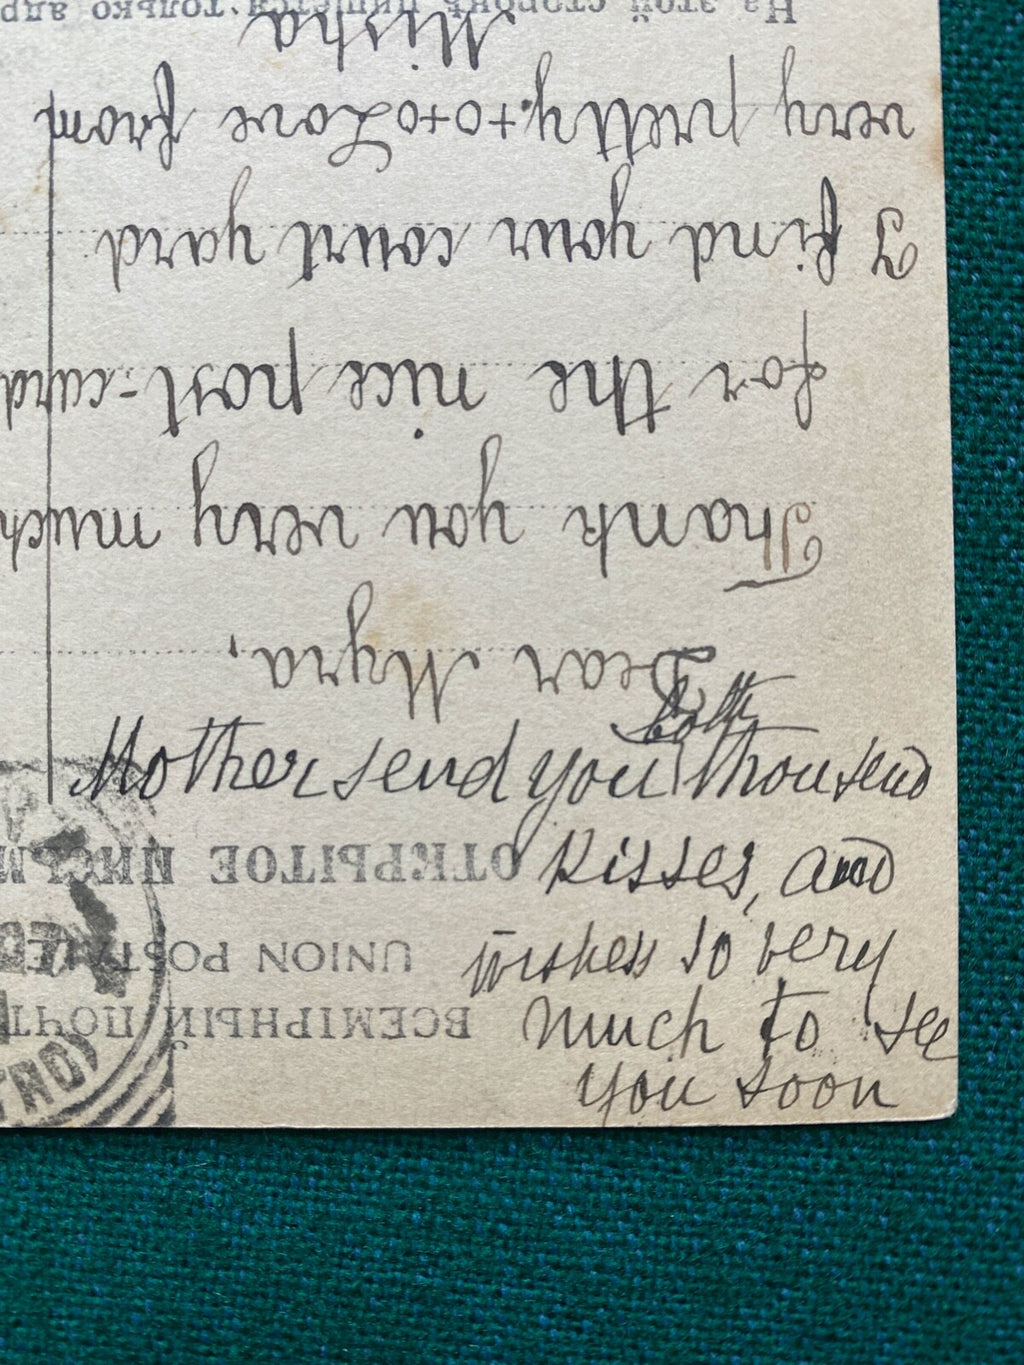 ВСЕМІРНЫЙ ПОЧТ
UNION POSTALE
ОТКРЫТОЕ ПИСЬМ
Dear Myra,
Thank you very much
for the nice post-card
I find your court yard
very pretty.+o+o Love from
Misha
На этой сторонѣ пишется только адр
Mother send you both thousend
kisses, and
wishes so very
much to see
you soon